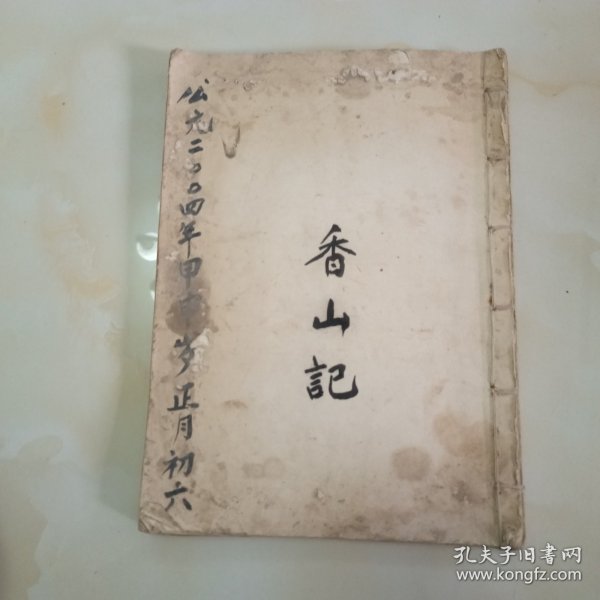 香山記
公元二〇〇四年甲申岁正月初六
孔夫子旧书网
www.kongfz.com